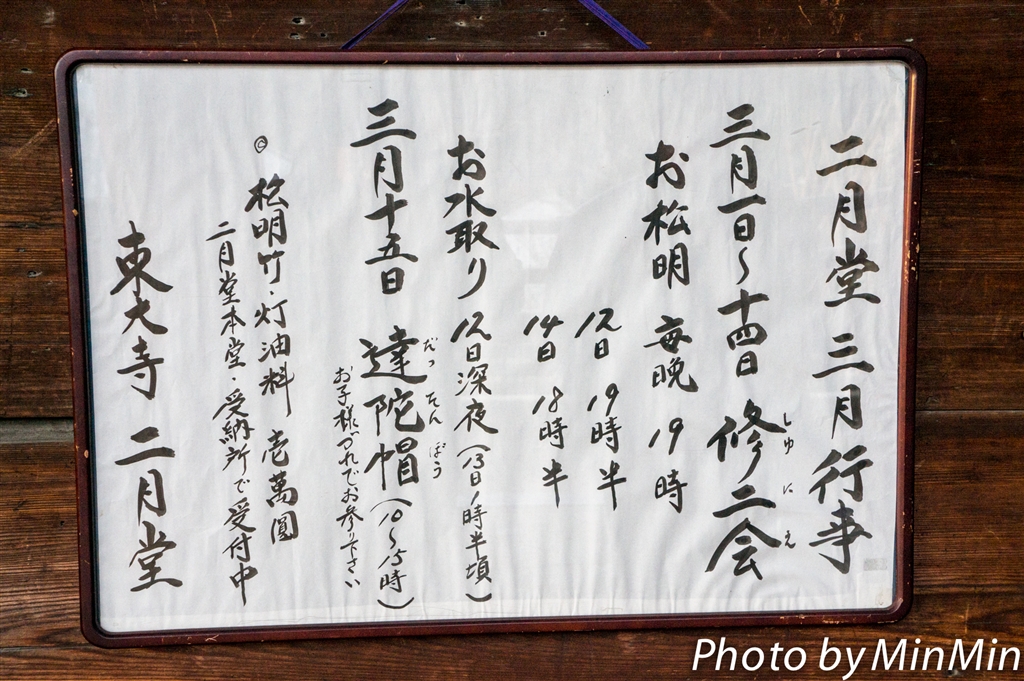 二月堂 三月行事
三月一日〜十四日 修二会
しゅ に え
お松明 毎晩 19時
12日 19時半
14日 18時半
お水取り 12日深夜(13日1時半頃)
三月十五日 達陀帽(10〜15時)
だっ たん ぼう
お子様づれでお参り下さい
◎ 松明竹・灯油料 壱萬圓
二月堂本堂・受納所で受付中
東大寺 二月堂
Photo by MinMin